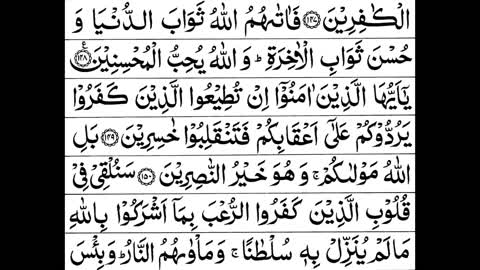 الْكٰفِرِيْنَ ﴿۱۴۷﴾ فَاٰتٰىهُمُ اللّٰهُ ثَوَابَ الدُّنْيَا وَ
حُسْنَ ثَوَابِ الْاٰخِرَةِ ؕ وَ اللّٰهُ يُحِبُّ الْمُحْسِنِيْنَ ﴿۱۴۸﴾ ع
يٰۤاَيُّهَا الَّذِيْنَ اٰمَنُوْۤا اِنْ تُطِيْعُوا الَّذِيْنَ كَفَرُوْا
يَرُدُّوْكُمْ عَلٰۤى اَعْقَابِكُمْ فَتَنْقَلِبُوْا خٰسِرِيْنَ ﴿۱۴۹﴾ بَلِ
اللّٰهُ مَوْلٰىكُمْ ۚ وَ هُوَ خَيْرُ النّٰصِرِيْنَ ﴿۱۵۰﴾ سَنُلْقِيْ فِيْ
قُلُوْبِ الَّذِيْنَ كَفَرُوا الرُّعْبَ بِمَاۤ اَشْرَكُوْا بِاللّٰهِ
مَا لَمْ يُنَزِّلْ بِهٖ سُلْطٰنًا ۚ وَ مَاْوٰىهُمُ النَّارُ ؕ وَ بِئْسَ